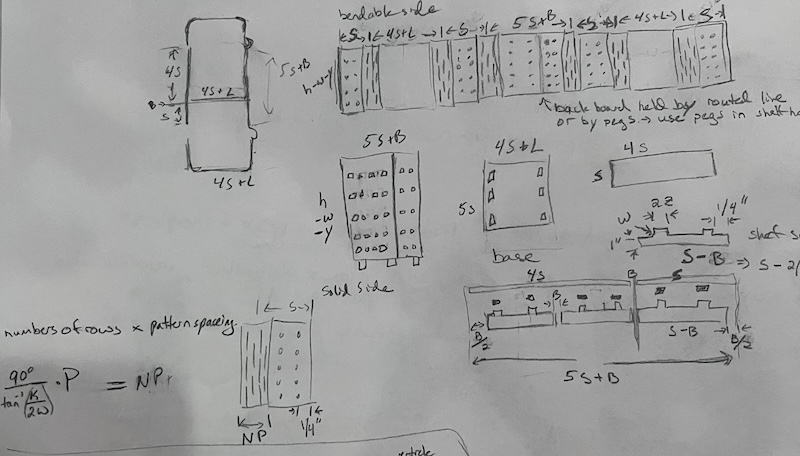 bendable side
S 4S+L S 5S+B S 4S+L S
h-w-y
back board held by routed line
or by pegs → use pegs in shelf
4S
4S+L
5S+B
B
S
4S+L
5S+B
h
-w
-y
4S+L
5S
base
4S
S
2Z
1/4"
w
1"
S-B
⇒ S-2
4S B S
B
B/2
S-B
B/2
5S+B
solid side
S
numbers of rows x pattern spacing
90°
tan⁻¹(K/2w) · P = NP
NP
1/4"